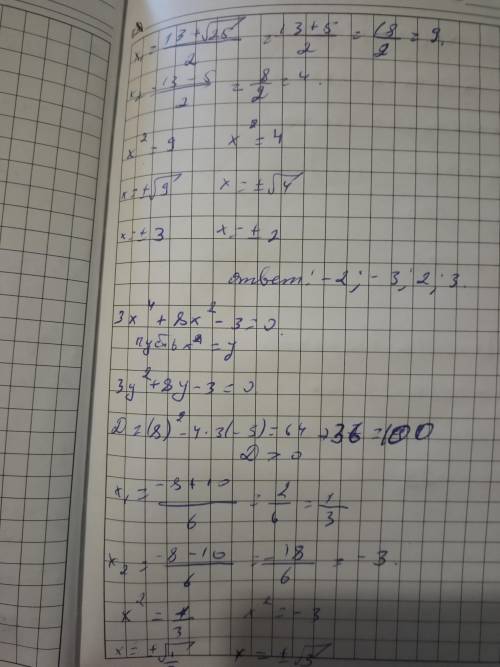 x₁ = (13 + √25)/2 = (13 + 5)/2 = 18/2 = 9.
x₂ = (13 − 5)/2 = 8/2 = 4.
x² = 9 x² = 4
x = ±√9 x = ±√4
x = ±3 x = ±2
ответ: −2; −3; 2; 3.
3x⁴ + 8x² − 3 = 0.
пусть x² = y
3y² + 8y − 3 = 0
D = (8)² − 4 · 3(−3) = 64 + 36 = 100
D > 0
x₁ = (−8 + 10)/6 = 2/6 = 1/3
x₂ = (−8 − 10)/6 = −18/6 = −3.
x² = 1/3 x² = −3
x = ±√1 x = ±√3